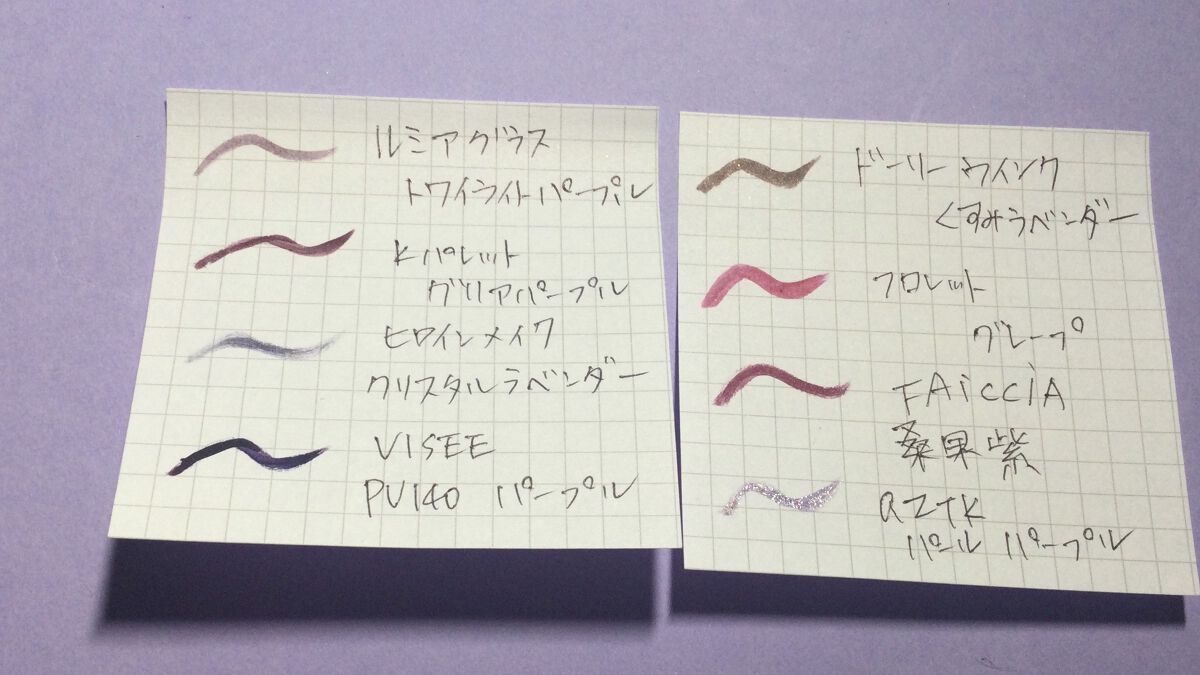 ルミアグラス
トワイライトパープル
Kパレット
グリアパープル
ヒロインメイク
クリスタルラベンダー
VISEE
PU140 パープル
ドーリーウインク
くすみラベンダー
フロレット
グレープ
FAiCCiA
桑果紫
QZTK
パール パープル